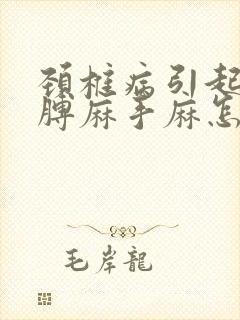 頚椎病引起
脾麻手麻怎
毛岸龍